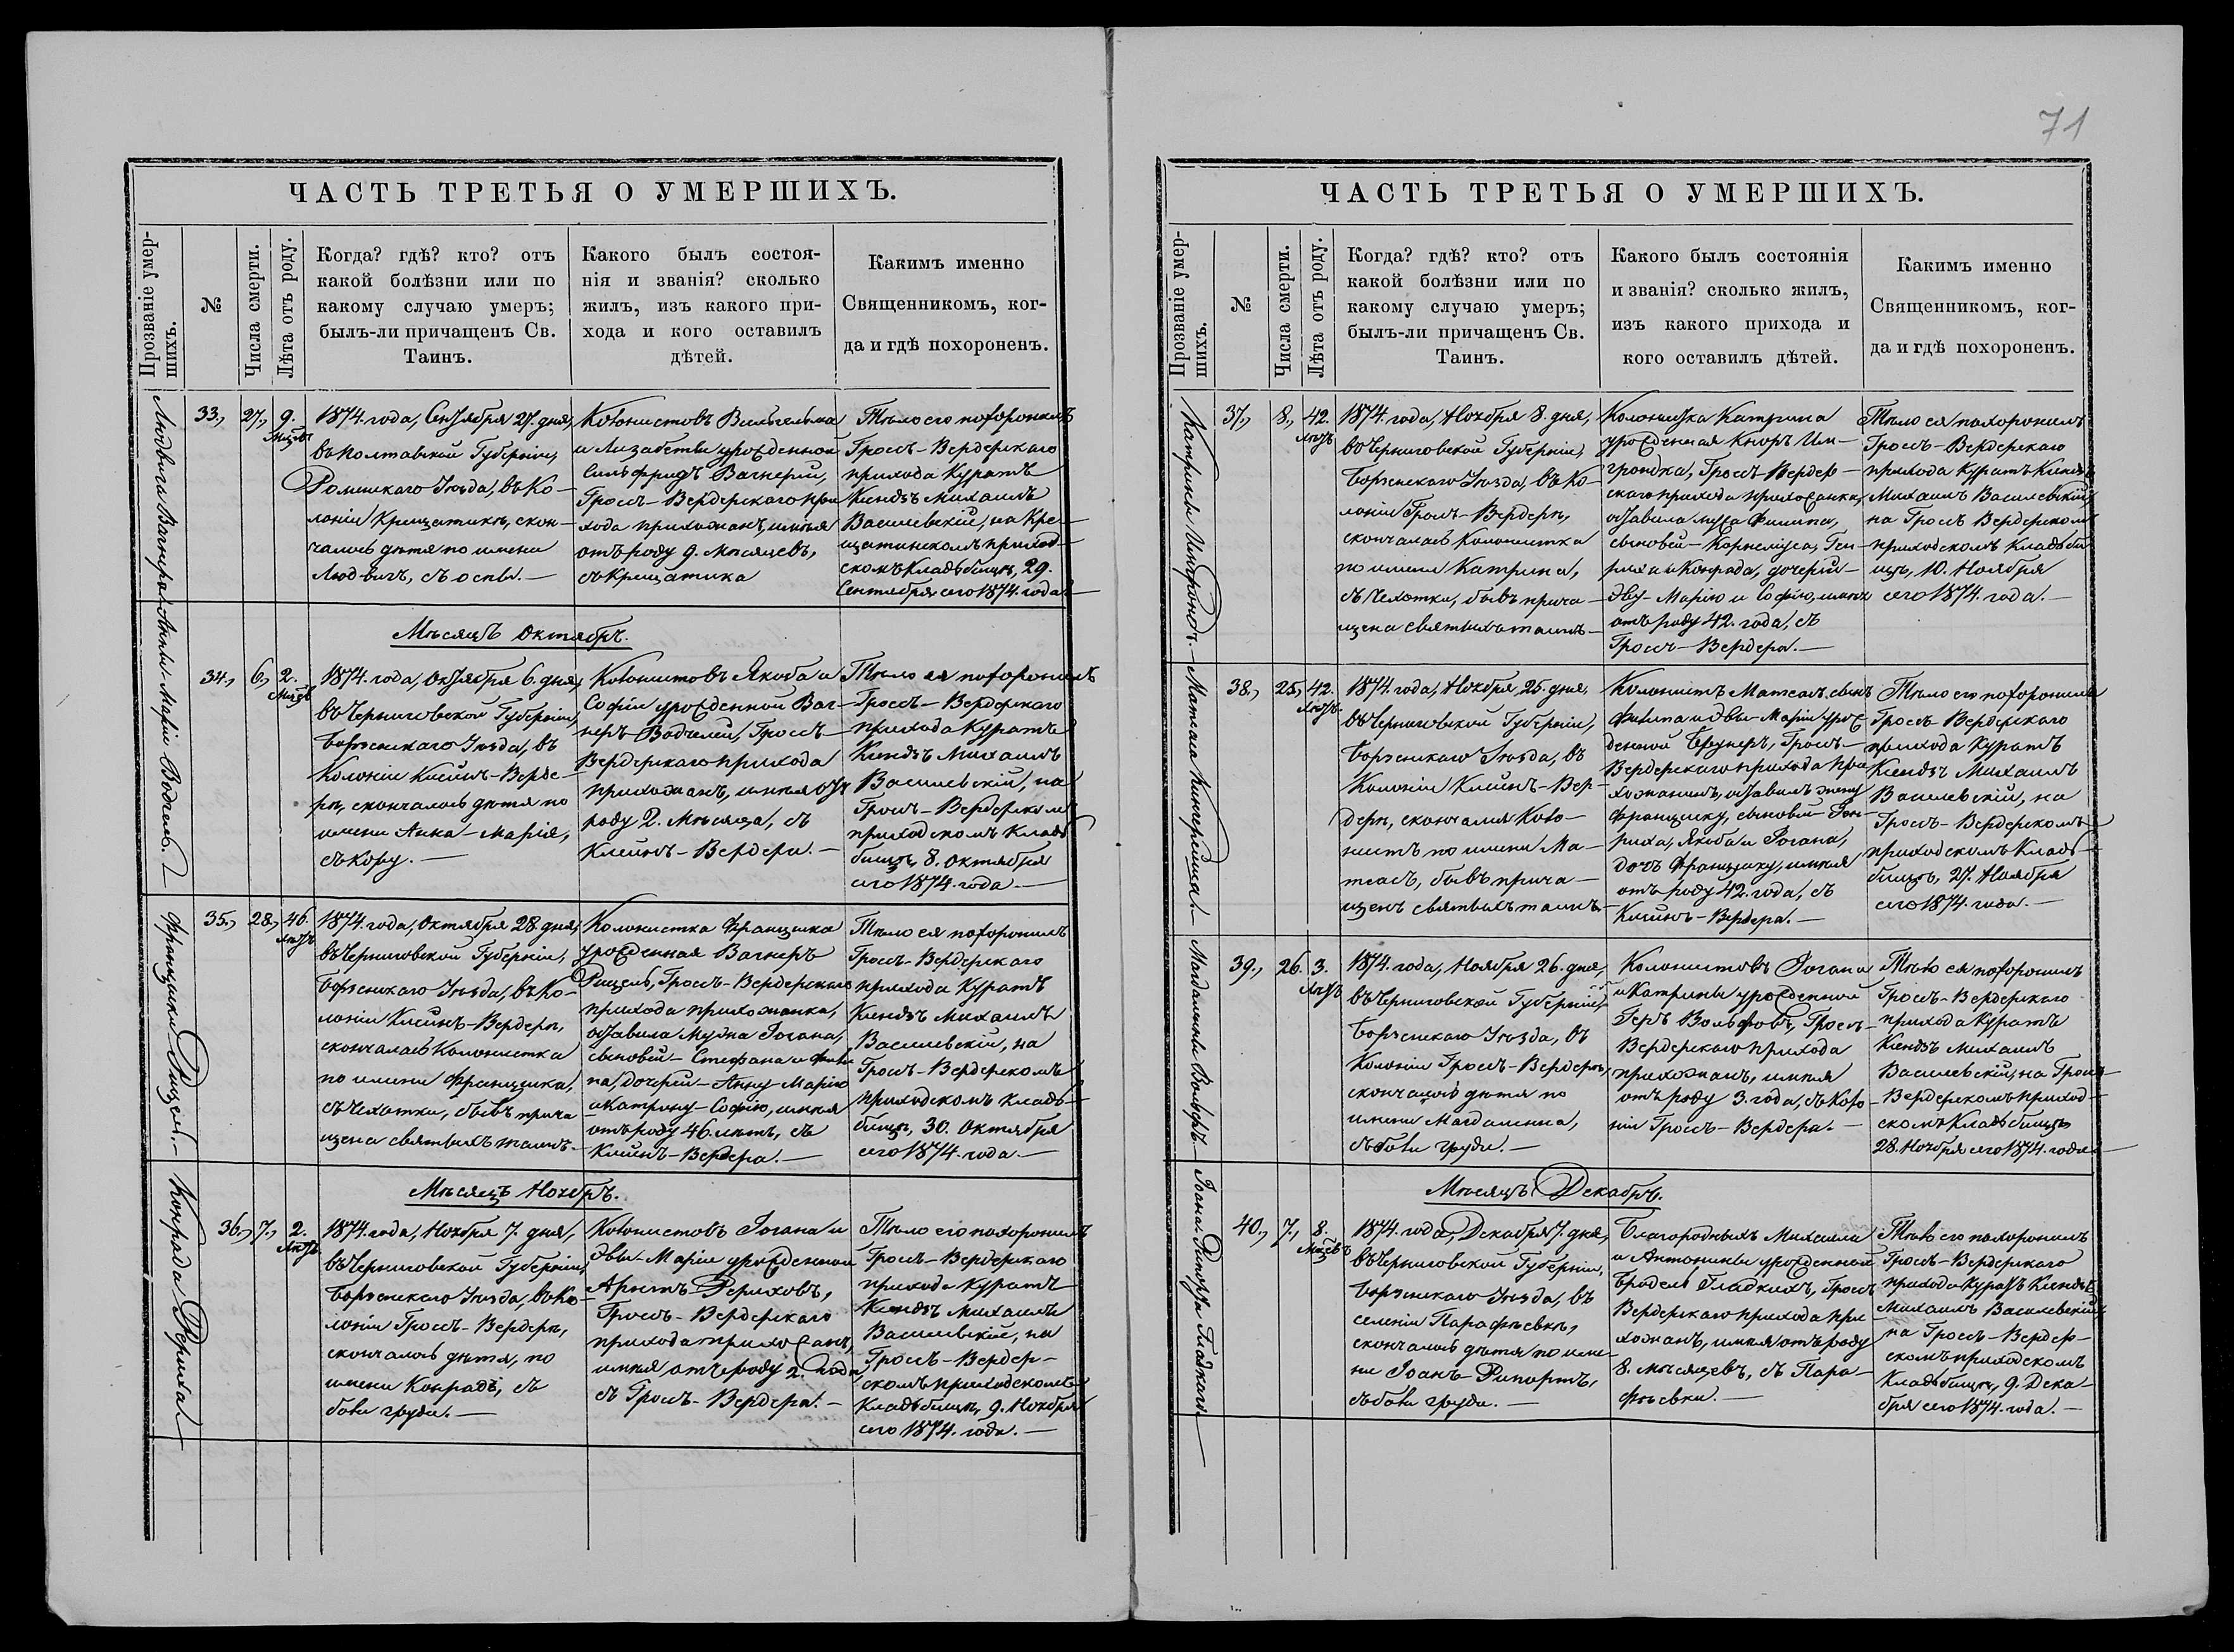 71
ЧАСТЬ ТРЕТЬЯ О УМЕРШИХЪ.
Прозваніе умер-
шихъ.
№
Числа смерти.
Лѣта отъ роду.
Когда? гдѣ? кто? отъ
какой болѣзни или по
какому случаю умеръ;
былъ-ли причащенъ Св.
Таинъ.
Какого былъ состоя-
нія и званія? сколько
жилъ, изъ какого при-
хода и кого оставилъ
дѣтей.
Какимъ именно
Священникомъ, ког-
да и гдѣ похороненъ.
Людвига Вагнера.
33.,
27.,
9.
Мѣцъ
1874. года, Сентября 27. дня,
въ Полтавской Губерніи,
Роменскаго Уѣзда, въ Ко-
лоніи Крещатикѣ, скон-
чалось дѣтя по имени
Людвигъ, съ оспы.—
Колонистовъ Вильгельма
и Лизабеты урожденной
Вагнерий,
Гросъ-Вердерскаго при
хода прихожанъ, имѣя
отъ роду 9. Мѣсяцевъ,
съ Крещатика
Тѣло его похоронилъ
Гросъ-Вердерскаго
прихода Куратъ
Ксендзъ Михаилъ
Василевскій, на Кре-
щатинскомъ приход-
скомъ Кладбищѣ, 29.
Сентября сего 1874. года.—
Мѣсяцъ Октябрь.
Анны-Маріи Водель.
34.,
6.,
2.
Мѣцъ
1874. года, Октября 6. дня,
въ Черниговской Губерніи,
Борзенскаго Уѣзда, въ
Колоніи Клейнъ-Верде-
рѣ, скончалось дѣтя по
имени Анна-Марія,
съ кору.—
Колонистовъ Якоба и
Софіи урожденной Ваг-
неръ Гросъ-
Вердерскаго прихода
прихожанъ, имѣя отъ
роду 2. Мѣсяца, съ
Клейнъ-Вердера.—
Тѣло ея похоронилъ
Гросъ-Вердерскаго
прихода Куратъ
Ксендзъ Михаилъ
Василевскій, на
Гросъ-Вердерскомъ
приходскомъ Клад-
бищѣ, 8. Октября
сего 1874. года.—
Франциски Рицель.—
35.,
28.,
46.
лѣтъ
1874. года, Октября 28. дня,
въ Черниговской Губерніи,
Борзенскаго Уѣзда, въ Ко-
лоніи Клейнъ-Вердерѣ,
скончалась Колонистка
по имени Франциска,
съ Чехотки, бывъ прича
щена святыхъ таинъ.—
Колонистка Франциска
урожденная Вагнеръ
Рицель, Гросъ-Вердерскаго
прихода прихожанка,
оставила Мужа Іогана,
сыновей-Стефана и Фили
па, дочерей-Анну-Марію
и Катрину-Софію, имѣя
отъ роду 46. лѣтъ, съ
Клейнъ-Вердера.—
Тѣло ея похоронилъ
Гросъ-Вердерскаго
прихода Куратъ
Ксендзъ Михаилъ
Василевскій, на
Гросъ-Вердерскомъ
приходскомъ Клад-
бищѣ, 30. Октября
сего 1874. года.—
Мѣсяцъ Ноябрь.
Конрада Дериха.
36.,
7.,
2.
лѣтъ
1874. года, Ноября 7. дня,
въ Черниговской Губерніи,
Борзенскаго Уѣзда, въ Ко-
лоніи Гросъ-Вердерѣ,
скончалось дѣтя, по
имени Конрадъ, съ
боли груди.—
Колонистовъ Іогана и
Эвы-Маріи урожденной
Арнтъ Дериховъ,
Гросъ-Вердерскаго
прихода прихожанъ,
имѣя отъ роду 2. года,
съ Гросъ-Вердера.—
Тѣло его похоронилъ
Гросъ-Вердерскаго
прихода Куратъ
Ксендзъ Михаилъ
Василевскій, на
Гросъ-Вердер-
скомъ приходскомъ
Кладбищѣ, 9. Ноября
сего 1874. года.—
ЧАСТЬ ТРЕТЬЯ О УМЕРШИХЪ.
Прозваніе умер-
шихъ.
№
Числа смерти.
Лѣта отъ роду.
Когда? гдѣ? кто? отъ
какой болѣзни или по
какому случаю умеръ;
былъ-ли причащенъ Св.
Таинъ.
Какого былъ состоянія
и званія? сколько жилъ,
изъ какого прихода и
кого оставилъ дѣтей.
Какимъ именно
Священникомъ, ког-
да и гдѣ похороненъ.
Катрины Имгрондъ.—
37.,
8.,
42.
лѣтъ
1874. года, Ноября 8. дня,
въ Черниговской Губерніи,
Борзенскаго Уѣзда, въ Ко-
лоніи Гросъ-Вердерѣ,
скончалась Колонистка
по имени Катрина,
съ Чехотки, бывъ прича-
щена святыхъ таинъ.—
Колонистка Катрина
урожденная Кноръ Им-
грондка, Гросъ-Вердер-
скаго прихода прихожанка,
оставила мужа Филипа,
сыновей-Корнелиуса, Ген-
риха и Конрада, дочерей-
Эву-Марію и Софію, имѣя
отъ роду 42. года, съ
Гросъ-Вердера.—
Тѣло ея похоронилъ
Гросъ-Вердерскаго
прихода Куратъ Ксендзъ
Михаилъ Василевскій,
на Гросъ Вердерскомъ
приходскомъ Кладби
щѣ, 10. Ноября
сего 1874. года.—
Матеаса
38.,
25.,
42.
лѣтъ
1874. года, Ноября 25. дня,
въ Черниговской Губерніи,
Борзенскаго Уѣзда, въ
Колоніи Клейнъ-Вер-
дерѣ, скончался Коло-
нистъ по имени Ма-
теасъ, бывъ прича-
щенъ святыхъ таинъ.—
Колонистъ Матеасъ, сынъ
Филипа и Эвы-Маріи урож
денной Гросъ-
Вердерскаго прихода при
хожанинъ, оставилъ жену
Франциску, сыновей-Ген-
риха, Якоба и Іогана,
дочь Франциску, имѣя
отъ роду 42. года, съ
Клейнъ-Вердера.—
Тѣло его похоронилъ
Гросъ-Вердерскаго
прихода Куратъ
Ксендзъ Михаилъ
Василевскій, на
Гросъ-Вердерскомъ
приходскомъ Клад-
бищѣ, 27. Ноября
сего 1874. года.—
Магдалины Вольфъ.—
39.,
26.
3.
лѣтъ
1874. года, Ноября 26. дня,
въ Черниговской Губерніи,
Борзенскаго Уѣзда, въ
Колоніи Гросъ-Вердерѣ,
скончалось дѣтя по
имени Магдалина,
съ боли груди.—
Колонистовъ Іогана
и Катрины урожденной
Геръ Вольфовъ, Гросъ-
Вердерскаго прихода
прихожанъ, имѣя
отъ роду 3. года, съ Коло-
ніи Гросъ-Вердера.—
Тѣло ея похоронилъ
Гросъ-Вердерскаго
прихода Куратъ
Ксендзъ Михаилъ
Василевскій, на Гросъ-
Вердерскомъ приход-
скомъ Кладбищѣ
28. Ноября сего 1874. года.—
Мѣсяцъ Декабрь.
Іоана-Рипорта Гладкаго.—
40.,
7.,
8.
Мѣцъ
1874. года, Декабря 7. дня,
въ Черниговской Губерніи,
Борзенскаго Уѣзда, въ
селеніи Парафѣевкѣ,
скончалось дѣтя по име-
ни Іоанъ-Рипортъ,
съ боли груди.—
Благородныхъ Михаила
и Антонины урожденной
Бродель Гладкихъ, Гросъ
Вердерскаго прихода при-
хожанъ, имѣя отъ роду
8. мѣсяцевъ, съ Пара-
фѣевки.—
Тѣло его похоронилъ
Гросъ-Вердерскаго
прихода Куратъ Ксендзъ
Михаилъ Василевскій,
на Гросъ-Вердер-
скомъ приходскомъ
Кладбищѣ, 9. Дека-
бря сего 1874. года.—